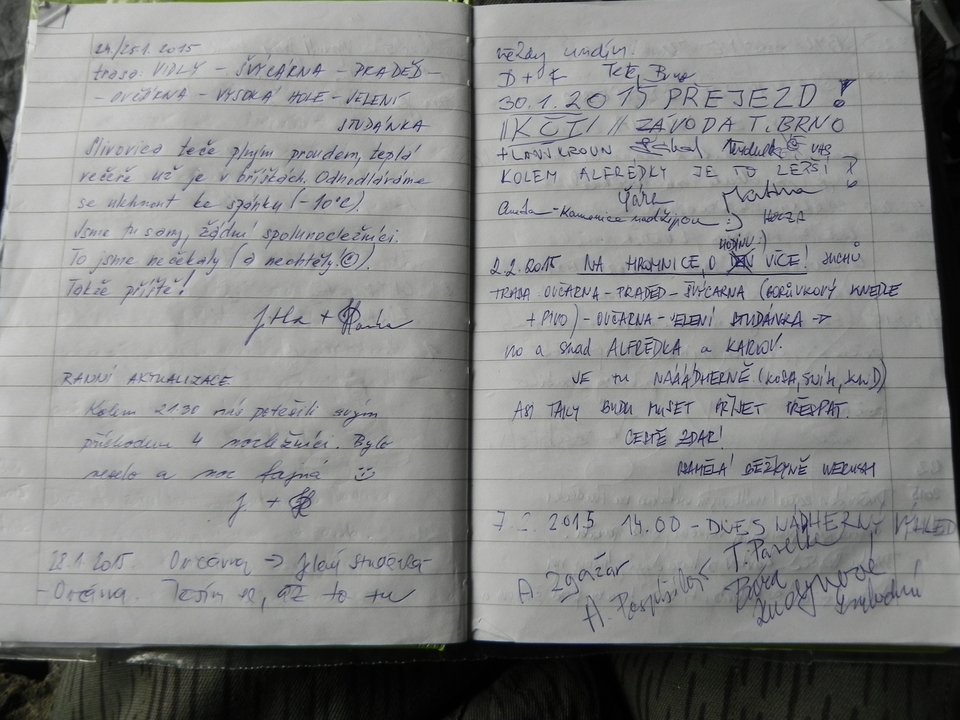 24./25.1. 2015
trasa: VIDLY - ŠVÝCÁRNA - PRADĚD -
- OVČÁRNA - VYSOKÁ HOLE - JELENÍ
STUDÁNKA
Slivovice teče plným proudem, teplá
večeře už je v bříškách. Odhodláváme
se ulehnout ke spánku (-10°C).
Jsme tu samy, žádní spolunocležníci.
To jsme nečekaly (a nechtěly ☺).
Takže příště!
RANNÍ AKTUALIZACE
Kolem 21:30 nás potěšili svým
příchodem 4 nocležníci. Bylo
veselo a moc fajná ☺
J +
28.1.2015 Ovčárna → Jelení studánka -
- Ovčárna. Těším se, až to tu
D + F Brno
30.1.2015 PŘEJEZD!
//KČT// ZÁVODA T. BRNO
+ LANŠKROUN VHS
KOLEM ALFRÉDKY JE TO LEPŠÍ?
Šárc Martina
:) HONZA
HODINU :)
2.2.2015 NA HROMNICE, O DEN VÍCE! SUCHÚ
TRASA OVČÁRNA - PRADĚD - ŠVÝCÁRNA (BORŮVKOVÝ KNEDLE
+ PIVO) - OVČÁRNA - JELENÍ STUDÁNKA →
no a snad ALFRÉDKA a KARLOV.
JE tu NÁÁÁDHERNĚ (KOSA, SNÍH, KLID)
ASI TAKY BUDU MUSET PŘIJET PŘESPAT.
CESTĚ ZDAR!
BĚŽKYNĚ
7.2.2015 14.00 - DNES NÁDHERNÝ VÝHLED
A. Zgažar T. Pavelka
A. Pospíšilová Bára